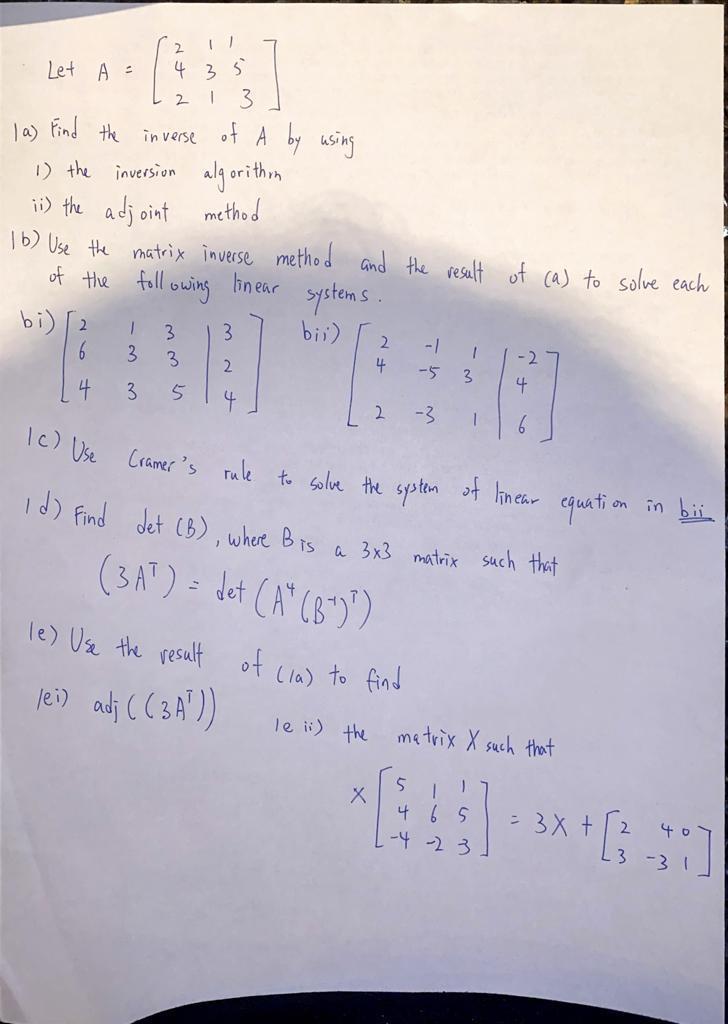 Let A = [ 2 1 1
4 3 5
2 1 3 ]
1a) Find the inverse of A by using
1) the inversion algorithm
ii) the adjoint method
1b) Use the matrix inverse method and the result of (a) to solve each
of the following linear systems.
bi) [ 2 1 3 | 3
6 3 3 | 2
4 3 5 | 4 ]
bii) [ 2 -1 1 | -2
4 -5 3 | 4
2 -3 1 | 6 ]
1c) Use Cramer's rule to solve the system of linear equation in bii
1d) Find det (B), where B is a 3x3 matrix such that
(3A^T) = det (A^4 (B^-1)^T)
1e) Use the result of (1a) to find
1ei) adj ((3A^T))
1e ii) the matrix X such that
X [ 5 1 1
4 6 5
-4 -2 3 ] = 3X + [ 2 4 0
3 -3 1 ]